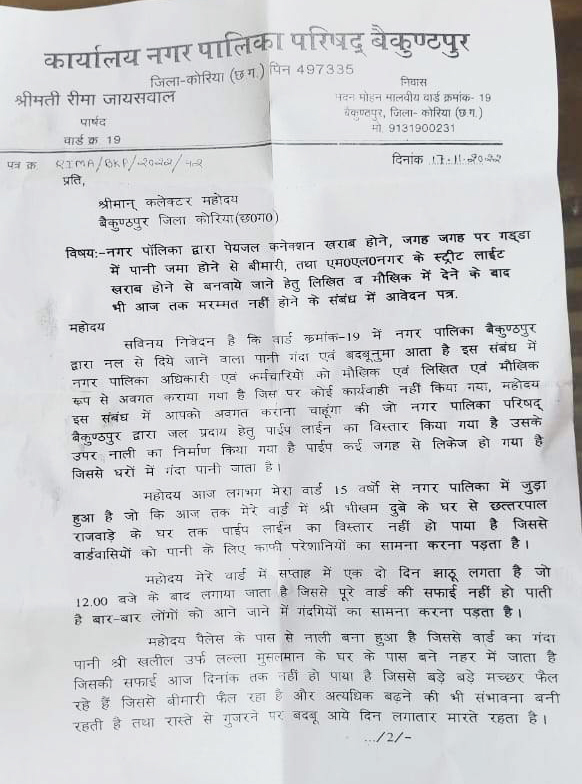 कार्यालय नगर पालिका परिषद् बैकुण्ठपुर
जिला-कोरिया (छ.ग.) पिन 497335
श्रीमती रीमा जायसवाल
पार्षद
वार्ड क्र 19
निवास
मदन मोहन मालवीय वार्ड क्रमांक- 19
बैकुण्ठपुर, जिला- कोरिया (छ.ग.)
मो. 9131900231
पत्र क्र RIMA/BKP/2022/42
दिनांक 17.11.2022
प्रति,
श्रीमान् कलेक्टर महोदय
बैकुण्ठपुर जिला कोरिया(छ0ग0)
विषयः-नगर पॉलिका द्वारा पेयजल कनेक्शन खराब होने, जगह जगह पर गड्डा
में पानी जमा होने से बीमारी, तथा एम0एल0नगर के स्ट्रीट लाईट
खराब होने से बनवाये जाने हेतु लिखित व मौखिक में देने के बाद
भी आज तक मरम्मत नहीं होने के संबंध में आवेदन पत्र.
महोदय
सविनय निवेदन है कि वार्ड क्रमांक-19 में नगर पालिका बैकुण्ठपुर
द्वारा नल से दिये जाने वाला पानी गंदा एवं बदबूनुमा आता है इस संबंध में
नगर पालिका अधिकारी एवं कर्मचारियों को मौखिक एवं लिखित एवं मौखिक
रूप से अवगत कराया गया है जिस पर कोई कार्यवाही नहीं किया गया, महोदय
इस संबंध में आपको अवगत कराना चाहूंगा की जो नगर पालिका परिषद्
बैकुण्ठपुर द्वारा जल प्रदाय हेतु पाईप लाईन का विस्तार किया गया है उसके
उपर नाली का निर्माण किया गया है पाईप कई जगह से लिकेज हो गया है
जिससे घरों में गंदा पानी जाता है।
महोदय आज लगभग मेरा वार्ड 15 वर्षो से नगर पालिका में जुड़ा
हुआ है जो कि आज तक मेरे वार्ड में श्री भीखम दुबे के घर से छत्तरपाल
राजवाड़े के घर तक पाईप लाईन का विस्तार नहीं हो पाया है जिससे
वार्डवासियों को पानी के लिए काफी परेशानियों का सामना करना पड़ता है।
महोदय मेरे वार्ड में सप्ताह में एक दो दिन झाठू लगता है जो
12.00 बजे के बाद लगाया जाता है जिससे पूरे वार्ड की सफाई नहीं हो पाती
है बार-बार लोंगों को आने जाने में गंदगियों का सामना करना पड़ता है।
महोदय पैलेस के पास से नाली बना हुआ है जिससे वार्ड का गंदा
पानी श्री खलील उर्फ लल्ला मुसलमान के घर के पास बने नहर में जाता है
जिसकी सफाई आज दिनांक तक नहीं हो पाया है जिससे बड़े बड़े मच्छर फैल
रहे हैं जिससे बीमारी फैल रहा है और अत्यधिक बढ़ने की भी संभावना बनी
रहती है तथा रास्ते से गुजरने पर बदबू आये दिन लगातार मारते रहता है।
.../2/-